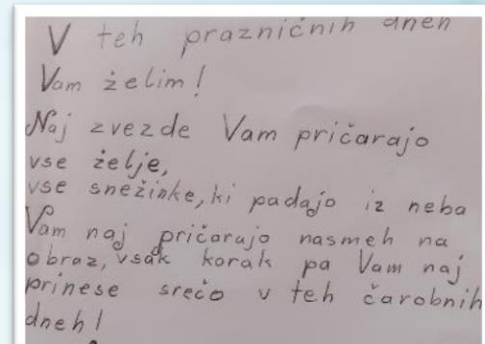 V teh prazničnih dneh
Vam želim!
Naj zvezde Vam pričarajo
vse želje,
vse snežinke, ki padajo iz neba
Vam naj pričarajo nasmeh na
obraz, vsak korak pa Vam naj
prinese srečo v teh čarobnih
dneh!